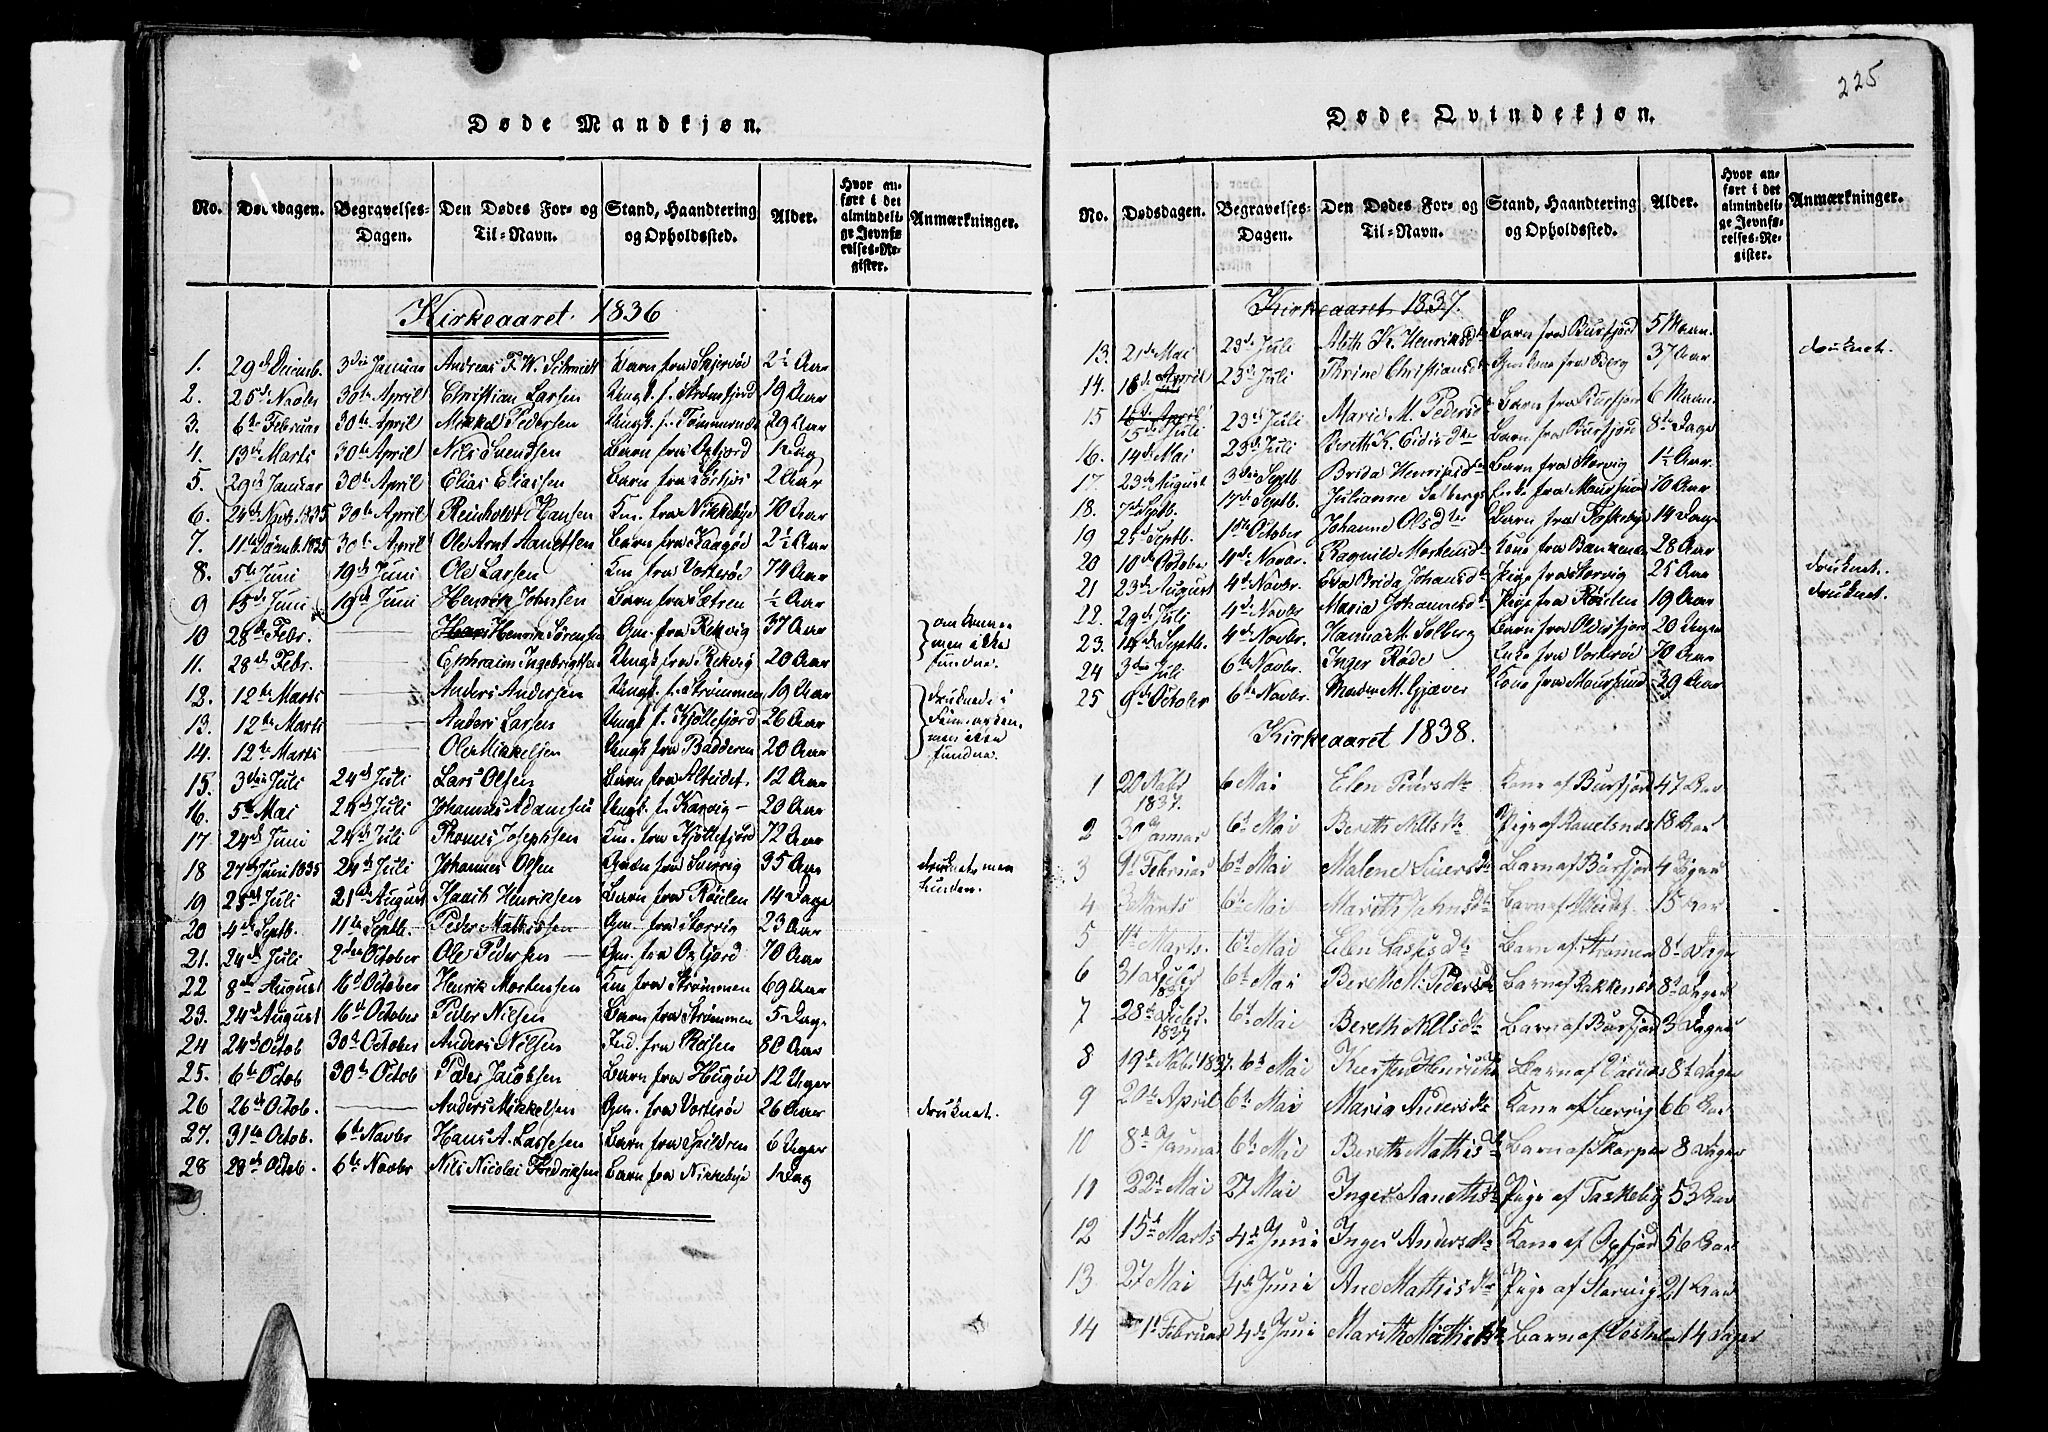 225
Døde Mandkjøn.
No. Dødsdagen. Begravelses-Dagen. Den Dødes For- og Til-Navn. Stand, Haandtering og Opholdssted. Alder. Hvor anført i det almindelige Jevnførelses-Register. Anmærkninger.
Kirkeaaret 1836
1. 29de Decemb. 3die Januar Andreas F. W. Schmidt Barn fra Skjervøe 2½ Aar
2. 25de Novbr 30te April Christian Larsen Ungk. f. Strømfjord 19 Aar
3. 6te Februar 30te April Mikkel Pedersen Ungk. f. Tømmernæs 29 Aar
4. 13de Marts 30te April Nils Svendsen Barn fra Oxfjord 1 Dag
5. 29de Januar 30te April Elias Eliasen Barn fra 2 Aar
6. 24de 1835 30te April Reinholdt Hansen Em. fra Nikkebye 70 Aar
7. 11te Decemb. 1835 30te April Ole Arnt Hansen Barn fra Kaagøe 2½ Aar
8. 5te Juni 19de Juni Ole Larsen Em. fra Vorterøe 74 Aar
9 15de Juni 19de Juni Henrik Johnsen Barn fra Sætren ½ Aar
10 28de Febr. — Henrik Sørensen Gm. fra Rekvig 37 Aar omkomne
11. 28de Febr. — Ephraim Ingebrigtsen Ungk. fra Rekvig 20 Aar men ikke fundne.
12. 12te Marts — Anders Andersen Ungk. f. Strømmen 19 Aar druknede i
13. 12te Marts Anders Larsen Ungk. f. Kjøllefjord 26 Aar Finmarken
14. 12te Marts — Ole Mikkelsen Ungk. fra Badderen 20 Aar men ikke fundne.
15. 3die Juli 24de Juli Lars Olsen Barn fra Alteidet 12 Aar
16. 5te Mai 24de Juli Johannes Adamsen Ungk. f. Karvig — 20 Aar
17. 24de Juni 24de Juli Thomas Josephsen Em. fra Kjøllefjord 72 Aar
18 27de Juni 1835 24de Juli Johannes Olsen fra Spirvig 35 Aar druknet men funden.
19 25de Juli 21de August Isach Henriksen Barn fra Røilen 14 Dage
20 4de Septb. 11te Septb. Peder Mathissen Gm. fra Storvig 23 Aar
21. 24de Juli 2den October Ole Pedersen — Gm. fra Oxfjord 70 Aar
22 8de August 16de October Henrik Mortensen Em fra Strømmen 69 Aar
23. 24de August 16de October Peder Nilsen Barn fra Strømmen 5 Dage
24 24de Octob 30te October Anders Nilsen Ind. fra Reisen 80 Aar
25. 6te Octob 30te Octob Peder Jacobsen Barn fra Hugøe 12 Uger
26 26de Octob. — Anders Mikkelsen Gm. fra Vorterøe 26 Aar druknet.
27. 31te Octob. 6te Novbr Hans A. Lassesen Barn fra Spildren 6 Uger
28 28de Octob. 6te Novbr Nils Nicolai Fredriksen Barn fra Nikkebye 1 Dag
Døde Qvindekjøn.
No. Dødsdagen. Begravelses-Dagen. Den Dødes For- og Til-Navn. Stand, Haandtering og Opholdssted. Alder. Hvor anført i det almindelige Jevnførelses-Register. Anmærkninger.
Kirkeaaret 1837.
13. 21de Mai 23de Juli K. Henriksdtr Barn fra Burfjord 5 Maan.
14. 16de April 23de Juli Thrine Christiansdtr fra 37 Aar druknet.
15 16de April 15de Juli 23de Juli Maria M. Pedersdtr Barn fra Burfjord 6 Maan.
16. 14de Mai 23de Juli Bereth K. Barn fra Burfjord 8te Dage
17 23de August 3die Septb. Brida Henriksdtr Barn fra Storvig 1½ Aar.
18. 7de Septb. 17de Septb. Julianne Solberg Enke fra Maursund 70 Aar
19 25de Septb. 1ste October Johanne Olsdtr Barn fra Taskeby 14 Dage
20 10de October 4de Novbr. Ragnild Mortensdtr Kone fra 28 Aar
21 23de August 4de Novbr. Brida Johansdtr Pige fra Storvig 25 Aar druknet.
22. 29de Juli 4de Novbr Maria Johannesdtr Pige fra Røilen 19 Aar druknet.
23. 14de Septb. 4de Novbr. Hanna M. Solberg Barn fra Olderfjord 20 Uger
24 3die Juli 6te Novbr. Inger Røde Enke fra Vorterøe 70 Aar
25 9de October 6te Novbr. M. Gjæver Kone fra Maursund 39 Aar
Kirkeaaret 1838.
1 20 Novbr 1837. 6 Mai Elen Pedersdtr Kone af Burfjord 47 Aar
2 Januar 6te Mai Bereth Nilsdtr Pige af 18 Aar
3 9de Februar 6te Mai Malene Barn af Burfjord 4 Uger
4 3 Marts 6te Mai Mareth Johnsdtr Barn af Alteidet 15 Aar
5 Marts. 6te Mai Elen Barn af Strømmen 8te Dage
6 31 1837 6te Mai Bereth M. Pedersdtr Barn af Rakkenæs 8te Dage
7 28de Decbr. 1837 6te Mai Bereth Nilsdtr Barn af Burfjord 3 Dage
8 19de Novbr 1837. 6te Mai Kirsten Henriksdtr Barn af 8te Dage
9 20de April 6te Mai Maria Andersdtr Kone af 66 Aar
10 8de Januar 6te Mai Bereth Mathisdtr Barn af Skorpen 8 Dage
11 22de Mai 27 Mai Inger Pige af Taskeby 53 Aar
12 15de Marts 4de Juni Inger Andersdtr Kone af Oxfjord 56 Aar
13. 27 Mai 4de Juni Ane Mathisdtr Pige af Storvig 21 Aar
14 1ste Februar 4de Juni Mareth Mathisdtr Barn af 14 Dage